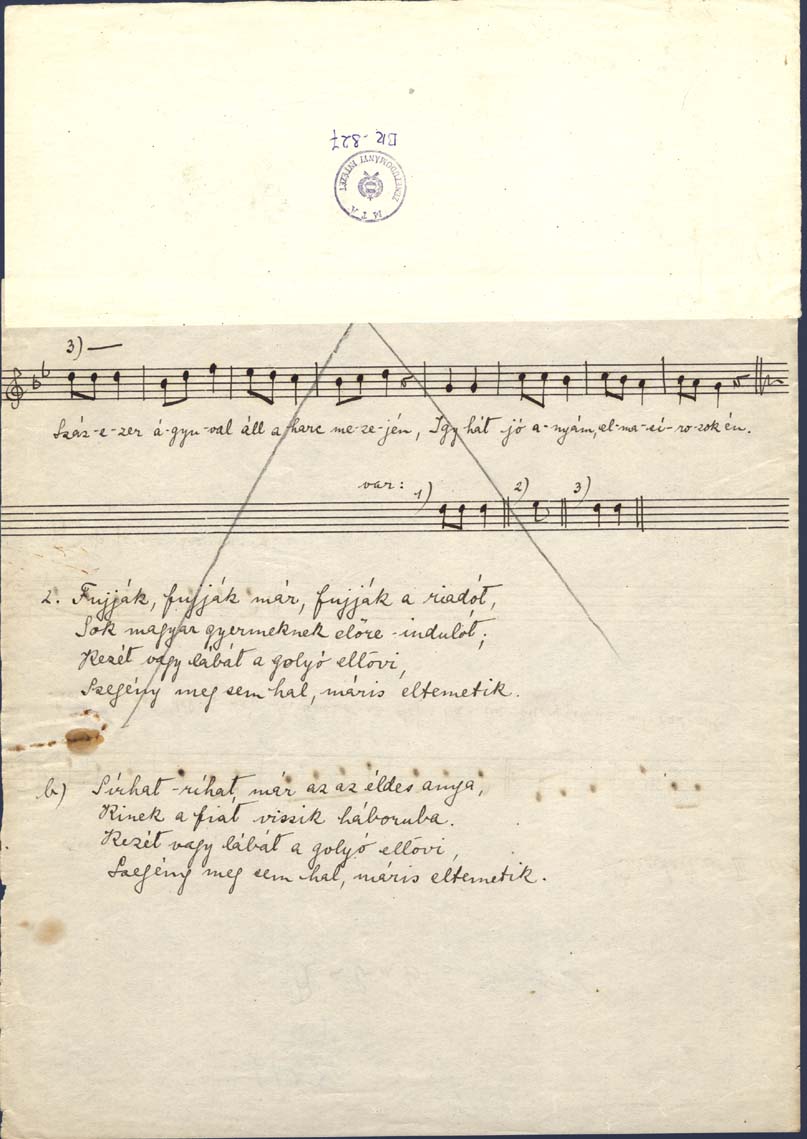 BR - 827
M T A
ZENETUDOMÁNYI INTÉZET
3) —
Száz-e-zer á-gyu-val áll a harc me-ze-jén, Igy hát jó a-nyám, el-ma-sí-ro-zok én.
var: 1) 2) 3)
2. Fujják, fujják már, fujják a riadót,
Sok magyar gyermeknek előre-indulót;
Kezét vagy lábát a golyó ellövi,
Szegény meg sem hal, máris eltemetik.
b) Sírhat-ríhat már az az éldes anya,
Kinek a fiát viszik háboruba.
Kezét vagy lábát a golyó ellövi,
Szegény meg sem hal, máris eltemetik.